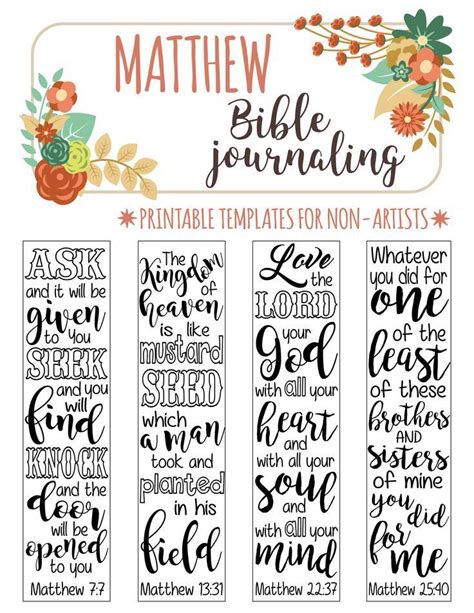 MATTHEW
Bible
journaling
PRINTABLE TEMPLATES FOR NON-ARTISTS
ASK
and it will be
given
to you
SEEK
and you
will
find
KNOCK
and the
door
will be
opened
to you
Matthew 7:7
The
Kingdom
of
heaven
is like
mustard
SEED
which
a man
took and
planted
in his
field
Matthew 13:31
Love
the
LORD
your
God
with all your
heart
and
with all your
soul
and
with all your
mind
Matthew 22:37
Whatever
you did for
one
of the
least
of these
brothers
AND
sisters
of mine
you
did
for
me
Matthew 25:40